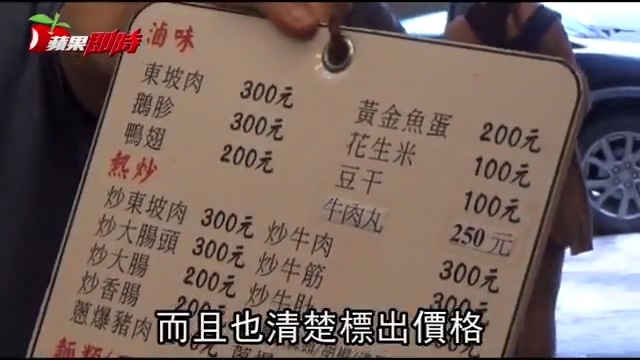 蘋果即時
滷味
東坡肉 300元
鵝胗 300元
鴨翅 200元
黃金魚蛋 200元
花生米 100元
豆干 100元
牛肉丸 250元
熱炒
炒東坡肉 300元
炒大腸頭 300元
炒大腸 200元
炒香腸 200元
蔥爆豬肉
炒牛肉 300元
炒牛筋 300元
炒牛肚
麵類
而且也清楚標出價格